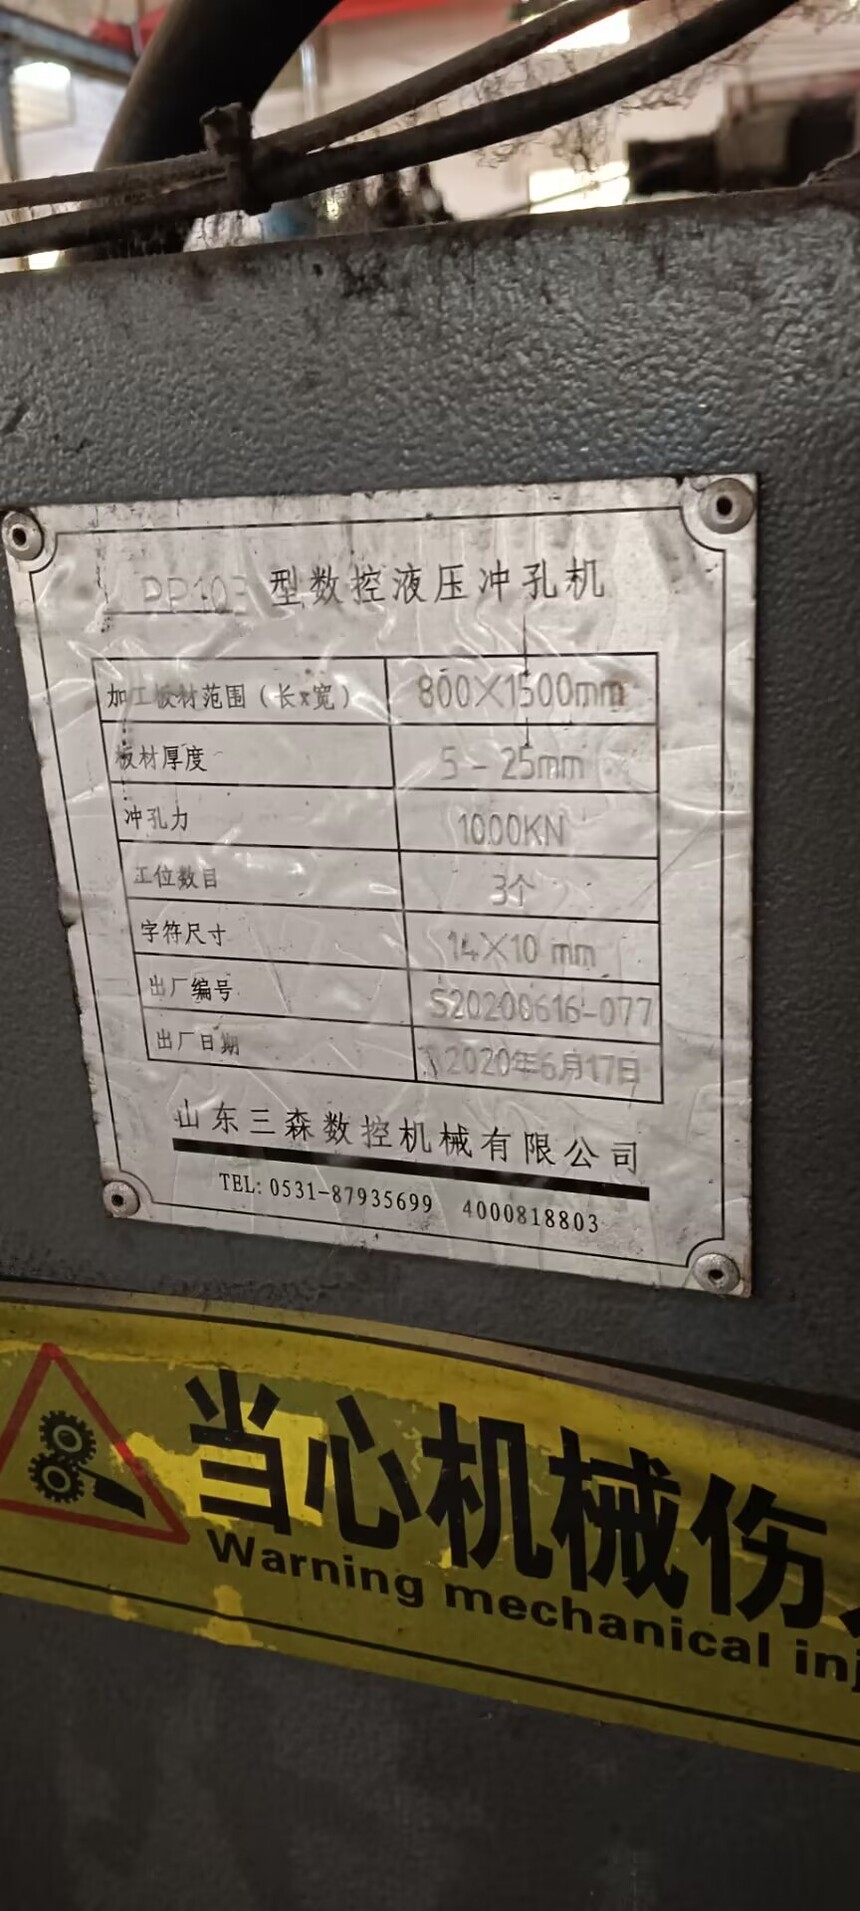 PP103 型数控液压冲孔机
加工板材范围(长x宽) 800X1500mm
板材厚度 5-25mm
冲孔力 1000KN
工位数目 3个
字符尺寸 14X10 mm
出厂编号 S20200616-077
出厂日期 2020年6月17日
山东三森数控机械有限公司
TEL: 0531-87935699 4000818803
当心机械伤
Warning mechanical inj